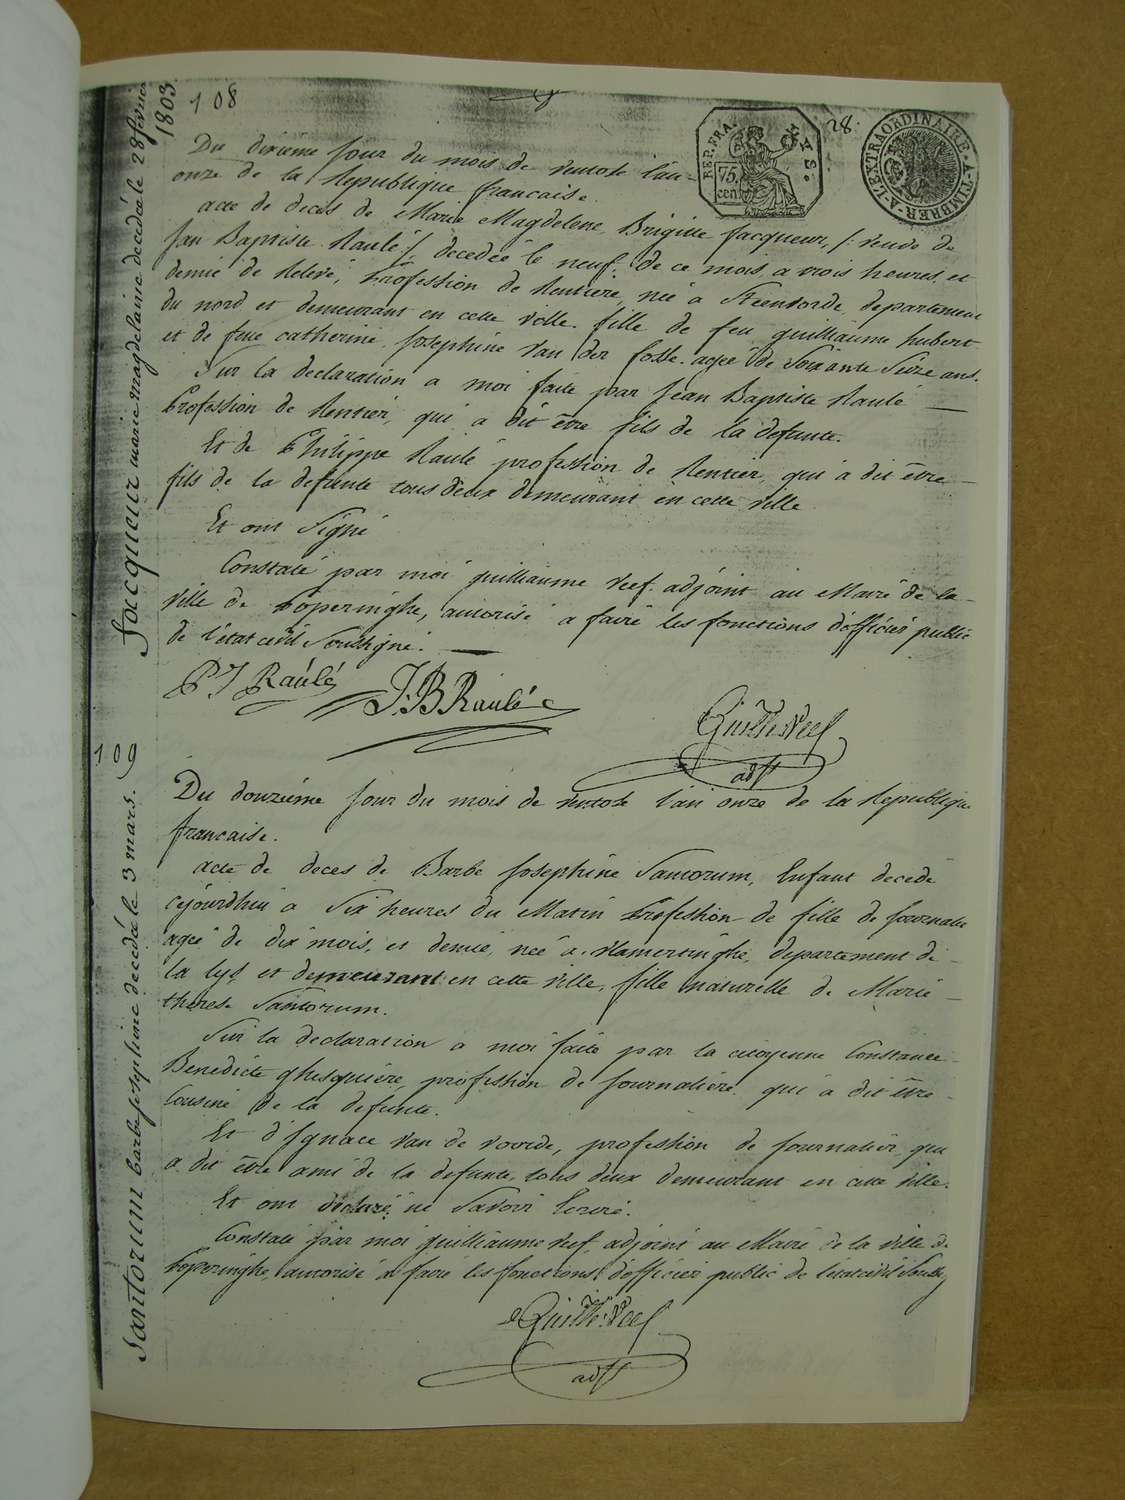 108
28.
REP. FRA.
75 cen
A L'EXTRAORDINAIRE A TIMBRER
Jaccqueur marie magdelaine decedée le 28 fevrier 1803.
Du dixieme jour du mois de ventose l'an
onze de la Republique francaise.
acte de deces de Marie Magdelene Brigitte Jacqueur, /: veuve de
Jan Baptiste Raulé :/ decedée le neuf de ce mois, a trois heures et
demie de Relevé, Profession de Rentiere, née a Steenvorde, departement
du nord et demeurant en cette ville. fille de feu guilliaume hubert
et de fuie catherine Josephine Van der fosse. agée de Soixante Seize ans.
Sur la declaration a moi faite par Jean Baptiste Raulé
Profession de Rentier, qui a dit être fils de la defunte.
Et de Philippe Raulé profession de Rentier, qui a dit être
fils de la defunte tous deux demeurant en cette ville
Et ont Signé
Constaté par moi guilliaume Veef adjoint au Maire de la
ville de Poperinghe, autorisé a faire les fonctions d'officier public
de l'état civil Soussigné.
P J Raúlé
J:B Raulé
Guill.e Veef
adjt
109
Santorum barbe josephine decedée le 3 mars.
Du douzieme jour du mois de ventose l'an onze de la Republique
francaise.
acte de deces de Barbe Josephine Santorum, Enfant decedé
cejourdhui a Six heures du Matin Profession de fille de Journalie
ageé de dix mois, et demie, née a Vlamertinghe, departement de
la lys et demeurant en cette ville, fille naturelle de Marie
therese Santorum.
Sur la declaration a moi faite par la citoyenne Constance
Benedicte ghesquiere, profession de Journaliere qui a dit être
Cousine de la defunte.
Et d'Ignace Van de voorde, profession de Journalier, qui
a dit être ami de la defunte, tous deux demeurant en cette ville.
Et ont declaré ne Savoir Ecrire.
Constaté par moi guilliaume Veef, adjoint au Maire de la ville de
Poperinghe, autorisé a faire les fonctions d'officier public de l'etat civil
Guill.e Veef
adjt